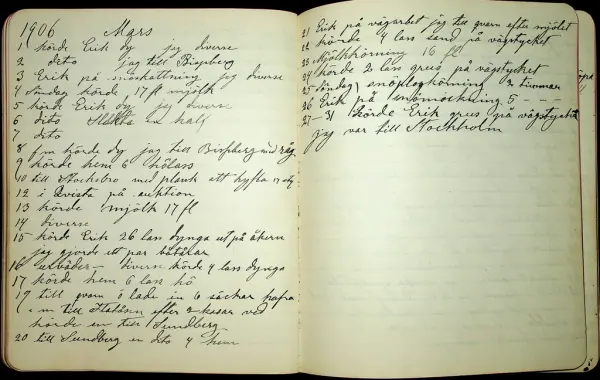 1906 Mars
1 körde Erik dy jag diverse
2 dito jag till Bispberg
3 Erik på snöskottning jag diverse
4 Söndag körde 17 fl mjölk
5 körde Erik dy jag diverse
6 dito Slakta en kalf
7 dito
8 fm körde dy jag till Bispberg med råg
9 körde hem 6 hölass
10 till Stockebro med plank ett hyfla 17
12 i Qvista på auktion
13 körde mjölk 17 fl
14 diverse
15 körde Erik 26 lass dynga ut på åkern
jag gjorde ett par båtårar
16 urväder - divers körde 4 lass dynga
17 körde hem 6 lass hö
17 till qvarn o lade in 6 säckar hafra
em till efter 2 lassar ved
körde en till Sundberg
20 till Sundberg en dito 4 hem
21 Erik på vägarbet jag till qvarn efter mjölet
22 körde 4 lass sand på vägstycket
23 Mjölkkörning 16 fl
24 körde 2 lass grus på vägstycket
25 Söndag snöplogkörning 2 timmar
26 Erik på snömockning 5 - - -
27-31 körde Erik grus på vägstycket
jag var till Stockholm